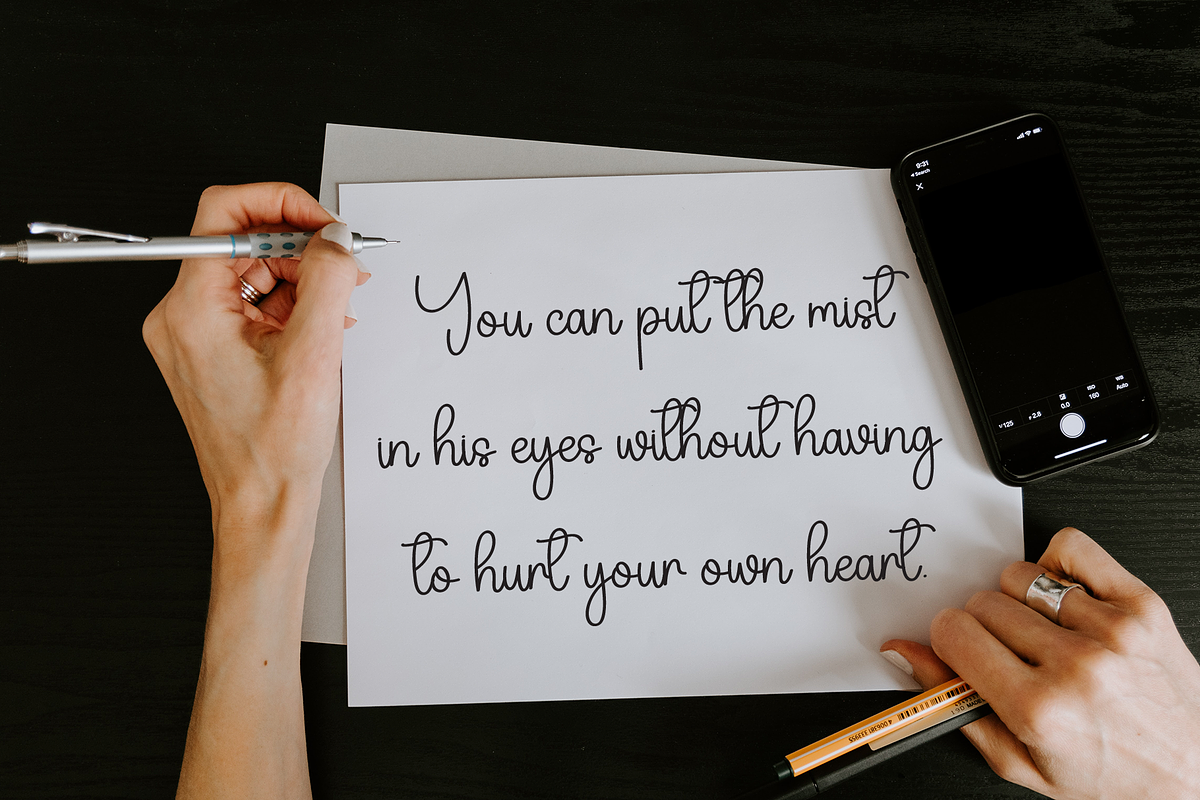 You can put the mist
in his eyes without having
to hurt your own heart.
9:31
Search
ISO
WB
V125
F 2.8
0.0
160
Auto